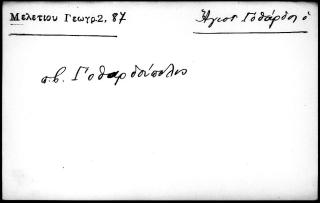 Μελετιου Γεωγρ2, 87
Ἅγιος Γοθάρδος ὁ
σ.β. Γοθαρδούπολις